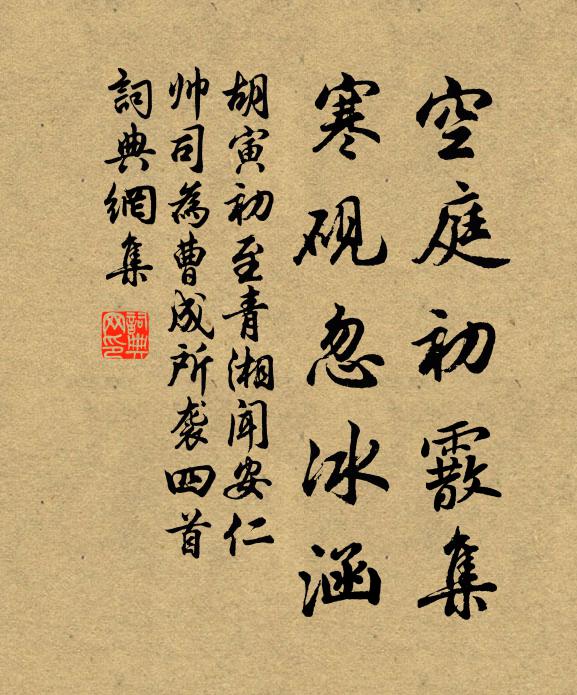 空庭初霰集
寒砚忽冰涵
胡寅初至青湘闻安仁
帅司為曹成所袭四首
詞典網集
詞典
网印